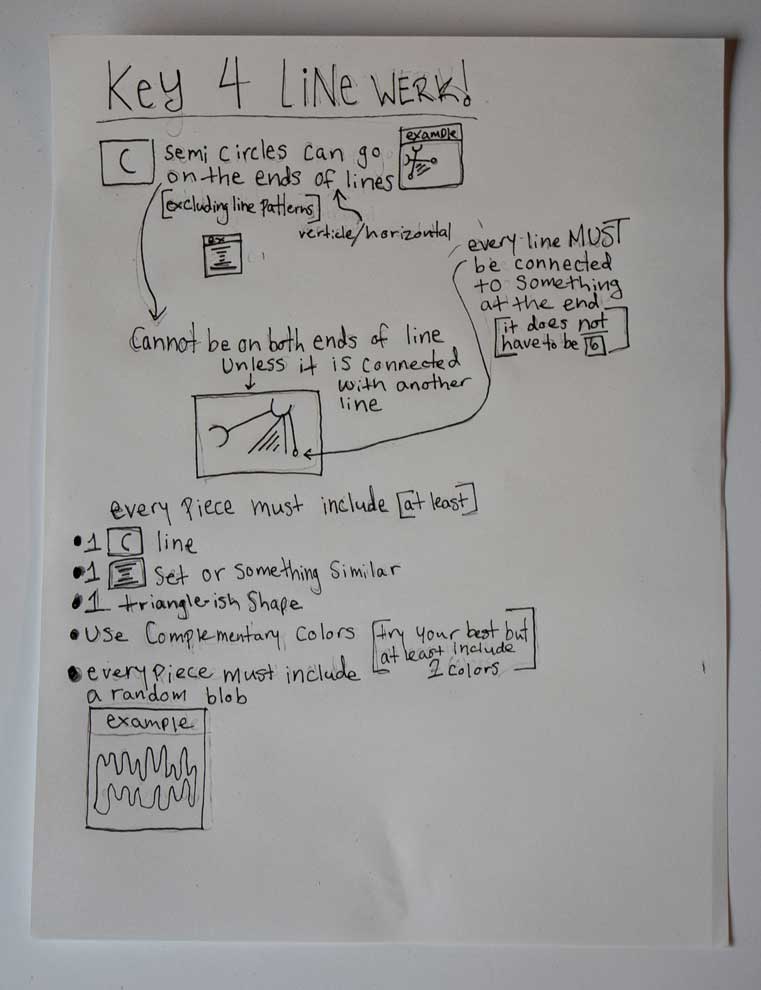 Key 4 LiNe WERK!
C
semi circles can go
on the ends of lines
example
[excluding line patterns]
verticle/horizontal
ex
Cannot be on both ends of line
unless it is connected
with another
line
every line MUST
be connected
to something
at the end
[it does not
have to be 6]
every piece must include [at least]
• 1 C line
• 1 set or something similar
• 1 triangle-ish shape
• use complementary colors [try your best but
at least include
2 colors]
• every piece must include
a random blob
example